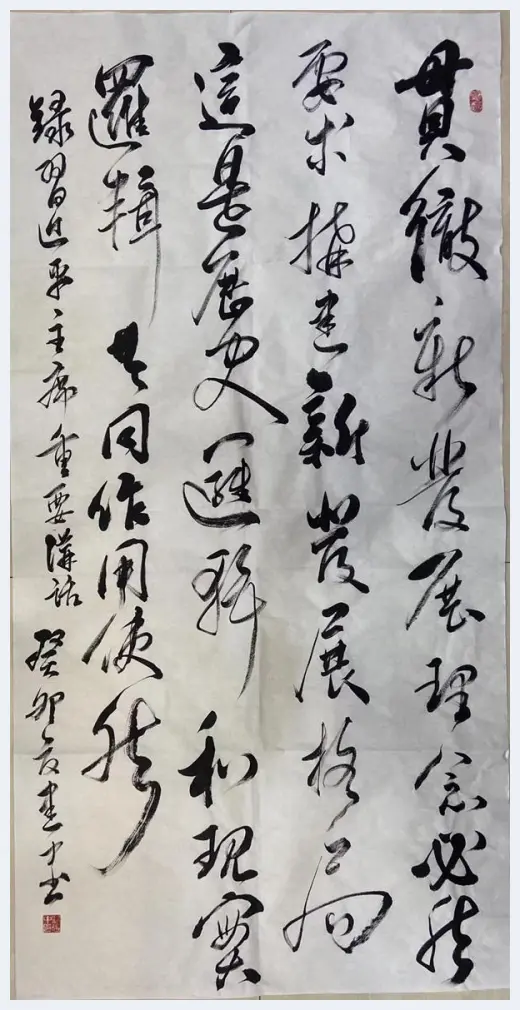 貫徹新發展理念必然
要求構建新發展格局
這是歷史邏輯和現實
邏輯共同作用使然
録習近平主席重要講話 癸卯夏建中书